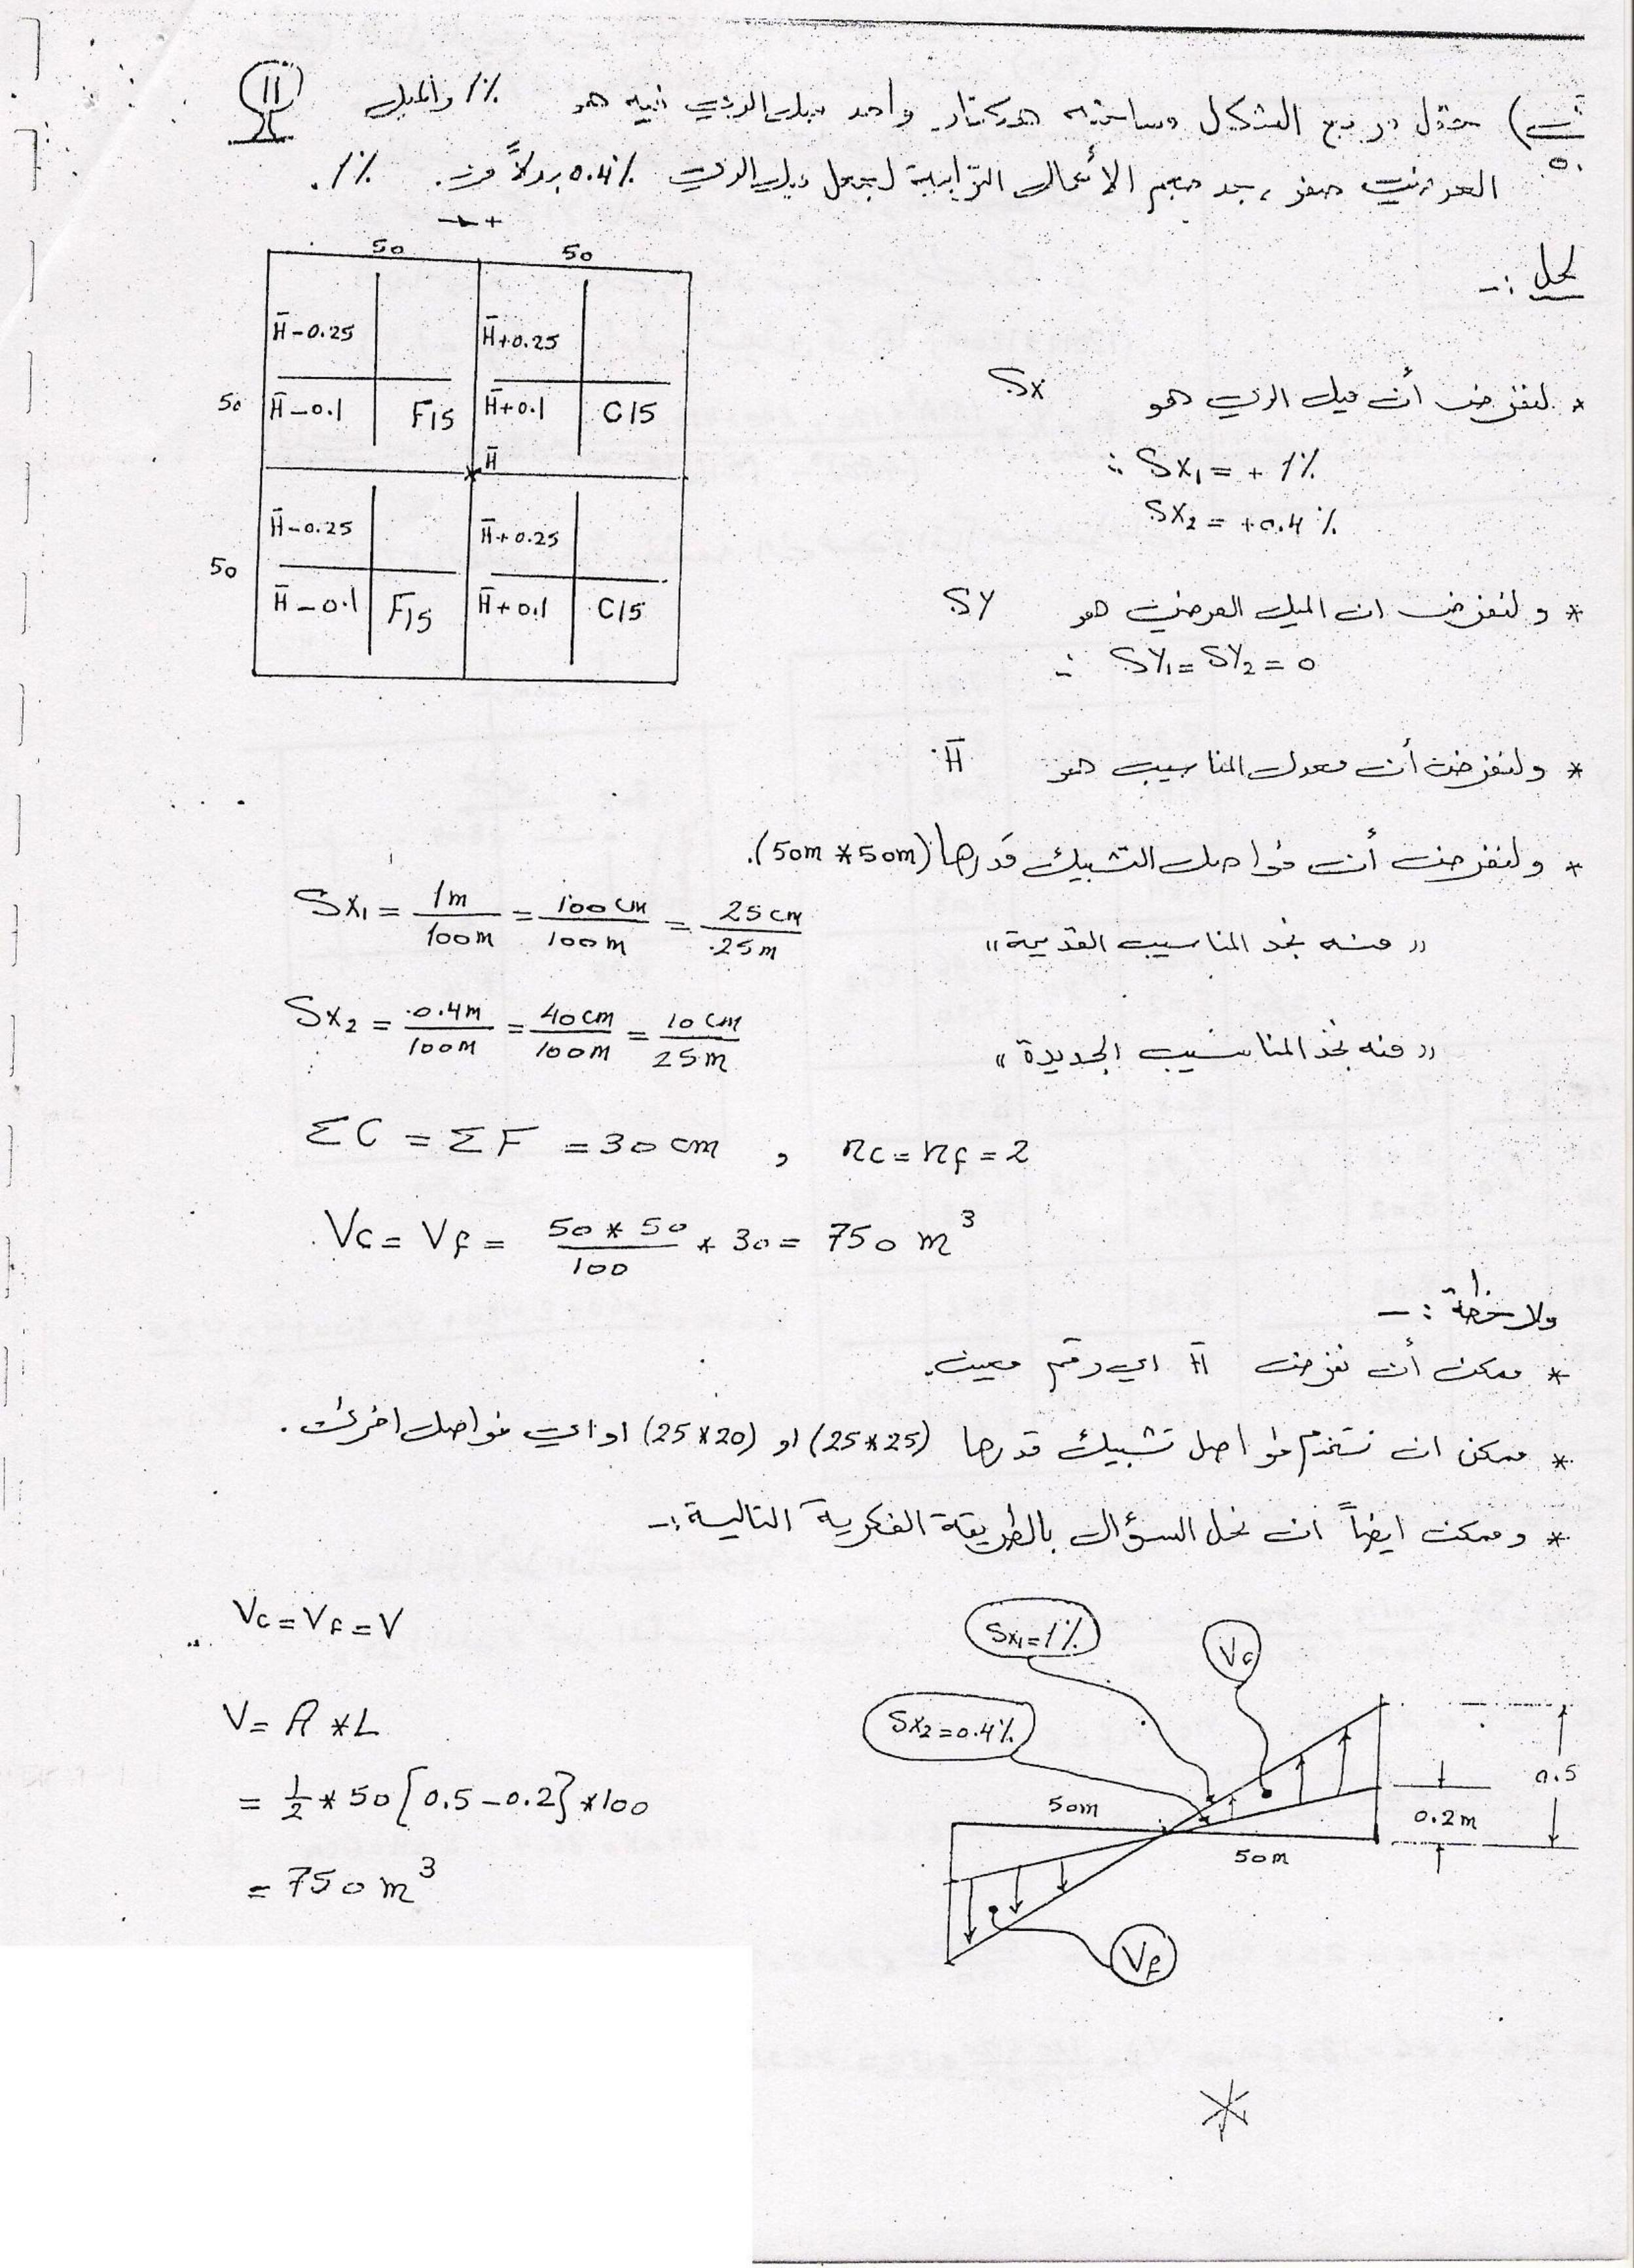 11
س٥) حقل مربع الشكل ومساحته هكتار واحد ميل الري فيه هو 1% والميل
العرضي صفر ، جد حجم الأعمال الترابية لجعل ميل الري 0.4% بدلاً من 1%.
الحل :-
→ +
50 50
H̄-0.25 H̄+0.25
50 H̄-0.1 F15 H̄+0.1 C15
H̄
H̄-0.25 H̄+0.25
50 H̄-0.1 F15 H̄+0.1 C15
* لنفرض أن ميل الري هو Sx
∴ Sx₁ = + 1%
Sx₂ = +0.4%
* ولنفرض ان الميل العرضي هو Sy
∴ Sy₁ = Sy₂ = 0
* ولنفرض أن معدل المناسيب هو H̄
* ولنفرض أن فواصل التشبيك قدرها (50m * 50m).
Sx₁ = 1m/100m = 100cm/100m = 25cm/25m "منه نجد المناسيب القديمة"
Sx₂ = 0.4m/100m = 40cm/100m = 10cm/25m "منه نجد المناسيب الجديدة"
ΣC = ΣF = 30cm , nc = nf = 2
Vc = Vf = 50 * 50/100 * 30 = 750 m³
ملاحظة :-
* ممكن أن نفرض H̄ اي رقم معين.
* ممكن ان نستخدم فواصل تشبيك قدرها (25*25) او (25*20) او اي فواصل اخرى.
* وممكن ايضاً ان نحل السؤال بالطريقة الفكرية التالية :-
Vc = Vf = V
V = A * L
= ½ * 50 [0.5 - 0.2] * 100
= 750 m³
Sx₁ = 1%
Vc
Sx₂ = 0.4%
50m
50m
0.5
0.2m
Vf